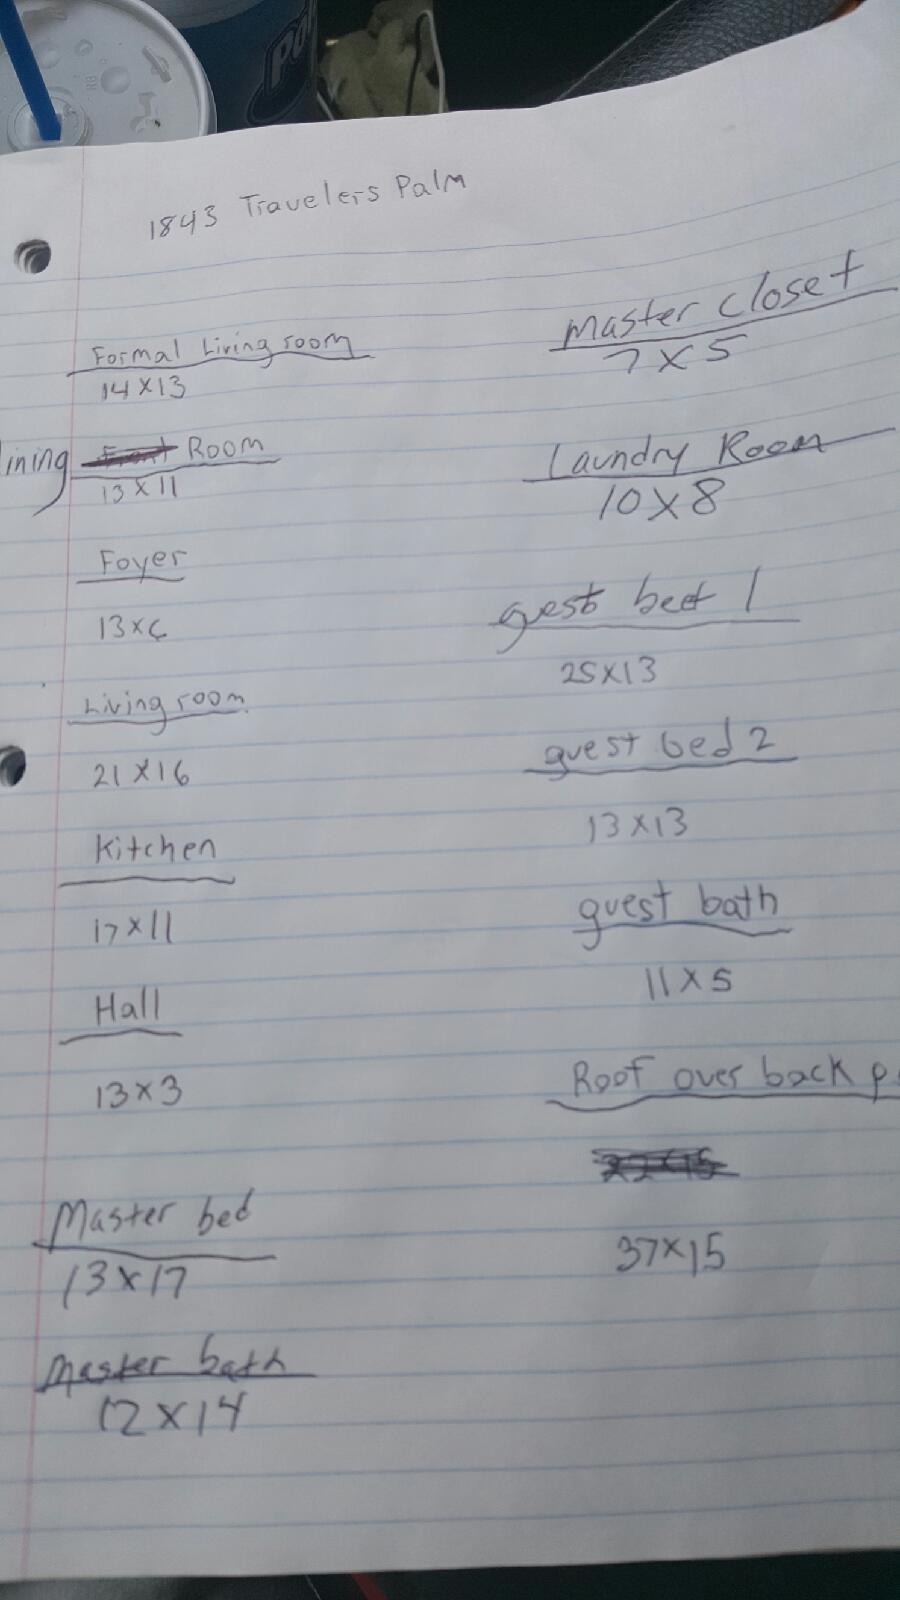 1843 Travelers Palm
Formal Living room
14 X 13
ining Room
13 X 11
Foyer
13 x 6
Living room
21 X 16
Kitchen
17 x 11
Hall
13 x 3
Master bed
13 x 17
Master bath
12 x 14
Master closet
7 x 5
Laundry Room
10 x 8
guest bed 1
25 x 13
guest bed 2
13 x 13
guest bath
11 x 5
Roof over back p
37 x 15